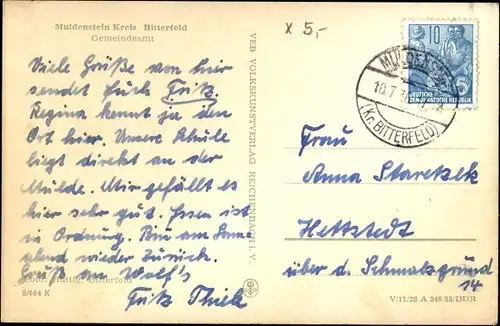 Muldenstein Kreis Bitterfeld
Gemeindeamt
x 5,-
Viele Grüße von hier
sendet Euch Fritz.
Regina kennt ja den
Ort hier. Unsere Schule
liegt direkt an der
Mulde. Mir gefällt es
hier sehr gut. Essen ist
in Ordnung. Bin am Sonn-
abend wieder zurück.
Gruß an Wolf's
Fritz Thiele
Bitterfeld
8/664 K
VEB VOLKSKUNSTVERLAG REICHENBACH I. V.
10
DEUTSCHE
DEMOKRATISCHE REPUBLIK
MULDENSTEIN
10.7.
(Kr. BITTERFELD)
Frau
Anna Staretzek
Hettstedt
über d. Schmalzgrund
14
V/11/28 A 246/55/DDR